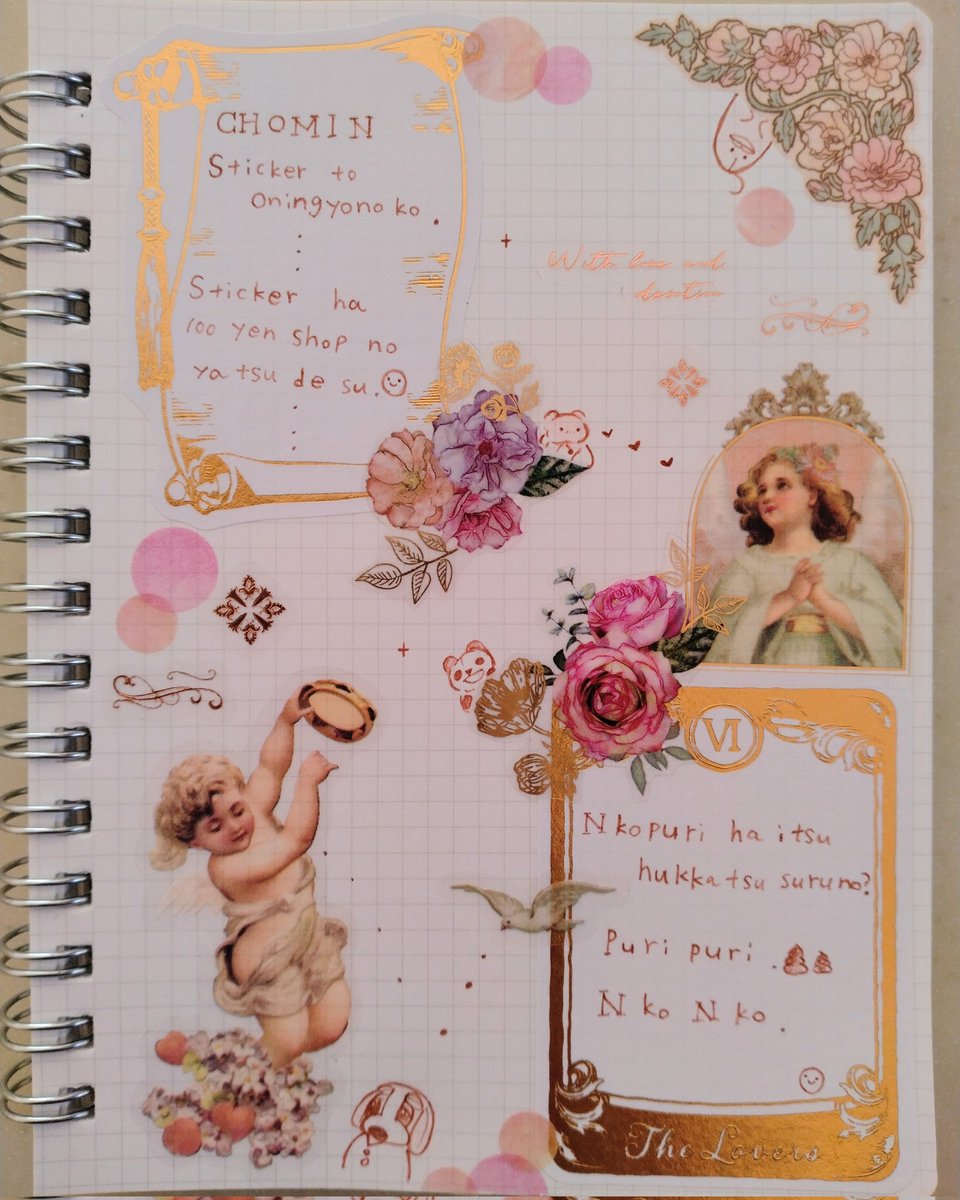 CHOMIN
Sticker to
Oningyono ko.
Sticker ha
100 yen shop no
yatsu de su.
With love and
devotion
VI
Nkopuri ha itsu
hukkatsu suruno?
Puri puri.
N ko N ko.
The Lovers